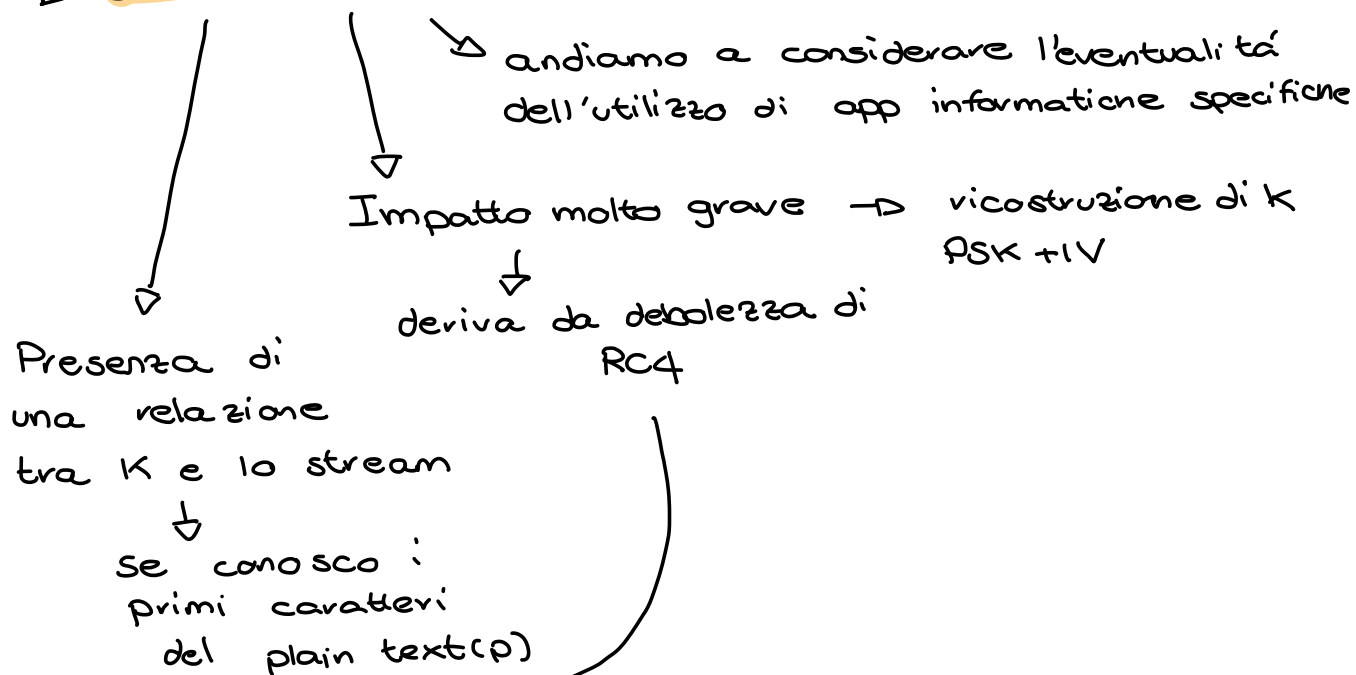 andiamo a considerare l'eventualitá
dell'utilizzo di app informatiche specifiche
Impatto molto grave → ricostruzione di K
PSK + IV
deriva da debolezza di
RC4
Presenza di
una relazione
tra K e lo stream
se conosco i
primi caratteri
del plain text (p)